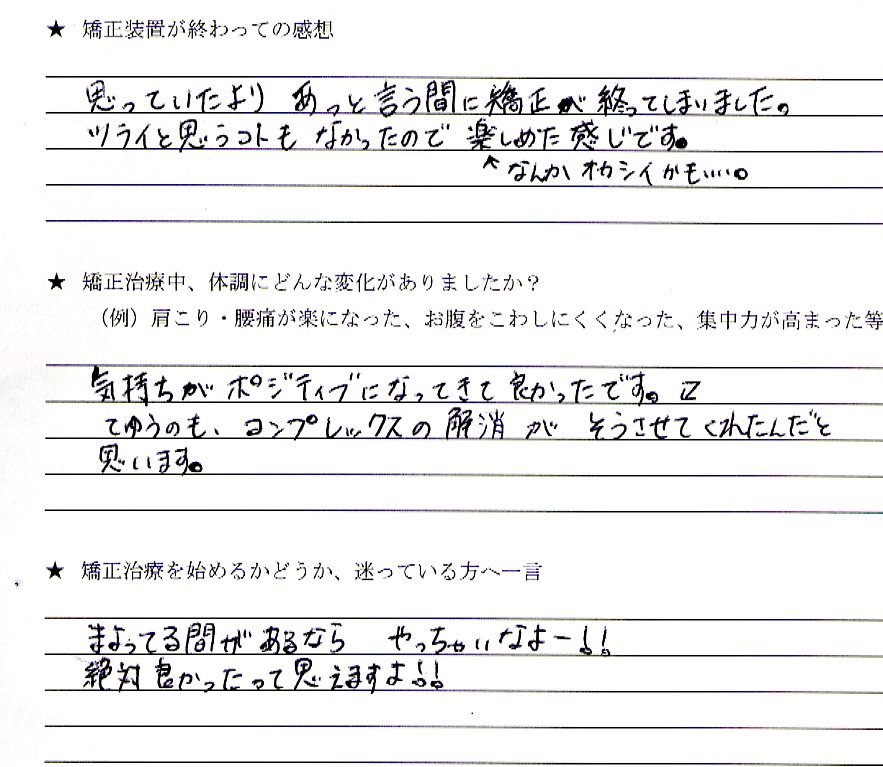 ★ 矯正装置が終わっての感想
思っていたより あっと言う間に矯正が 終ってしまいました。
ツライと思うコトも なかったので 楽しめた感じです。
↖なんか オカシイかも……。
★ 矯正治療中、体調にどんな変化がありましたか？
（例）肩こり・腰痛が楽になった、お腹をこわしにくくなった、集中力が高まった等
気持ちが ポジティブになってきて 良かったです。
てゆうのも、コンプレックスの 解消 が そうさせてくれたんだと
思います。
★ 矯正治療を始めるかどうか、迷っている方へ一言
まよってる間があるなら やっちゃいなよー!!
絶対良かったって思えますよ!!